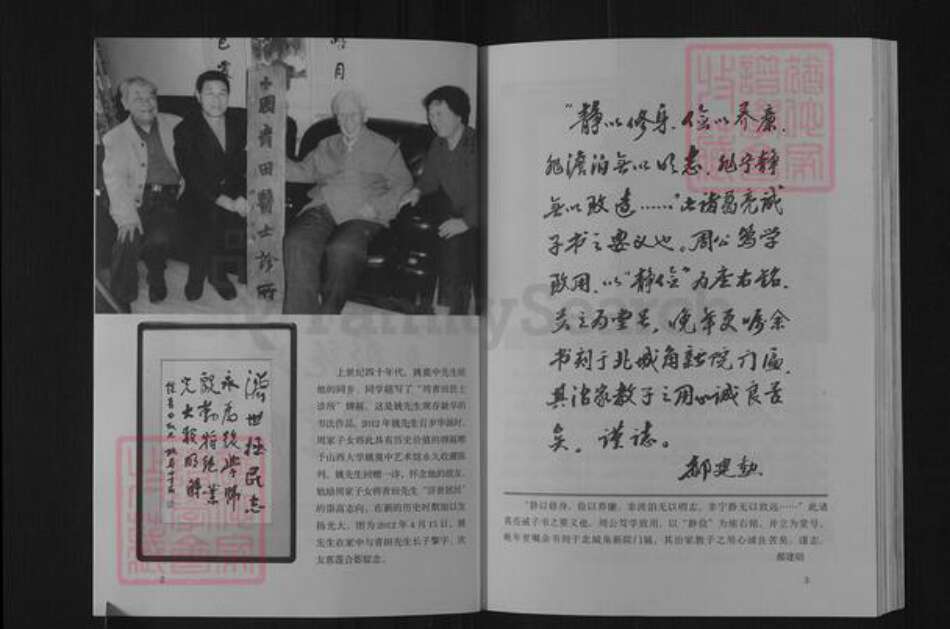 明月
周青田医士诊所
济世拯民志
永为后学师
上世纪四十年代,姚奠中先生给
他的同乡、同学题写了“周青田医士
诊所”牌匾。这是姚先生现存最早的
书法作品。2012年姚先生百岁华诞时,
周家子女将此具有历史价值的牌匾赠
予山西大学姚奠中艺术馆永久收藏陈
列。姚先生回赠一诗,怀念他的故友,
勉励周家子女将青田先生“济世拯民”
的崇高志向,在新的历史时期加以发
扬光大。图为2012年4月15日,姚
先生在家中与青田先生长子擎宇、次
女慕莲合影留念。
2
“静以修身,俭以养廉,
非澹泊无以明志,非宁静
无以致远……”此诸葛亮诫
子书之要义也。周公笃学
致用,以“静俭”为座右铭,
并立为堂号,晚年更嘱余
书刻于北城角新院门匾,
其治家教子之用心诚良苦
矣。谨志。
郝建勋
“静以修身,俭以养廉,非澹泊无以明志,非宁静无以致远……”此诸
葛亮诫子书之要义也。周公笃学致用,以“静俭”为座右铭,并立为堂号,
晚年更嘱余书刻于北城角新院门匾,其治家教子之用心诚良苦矣。谨志。
郝建勋
3
FamilySearch